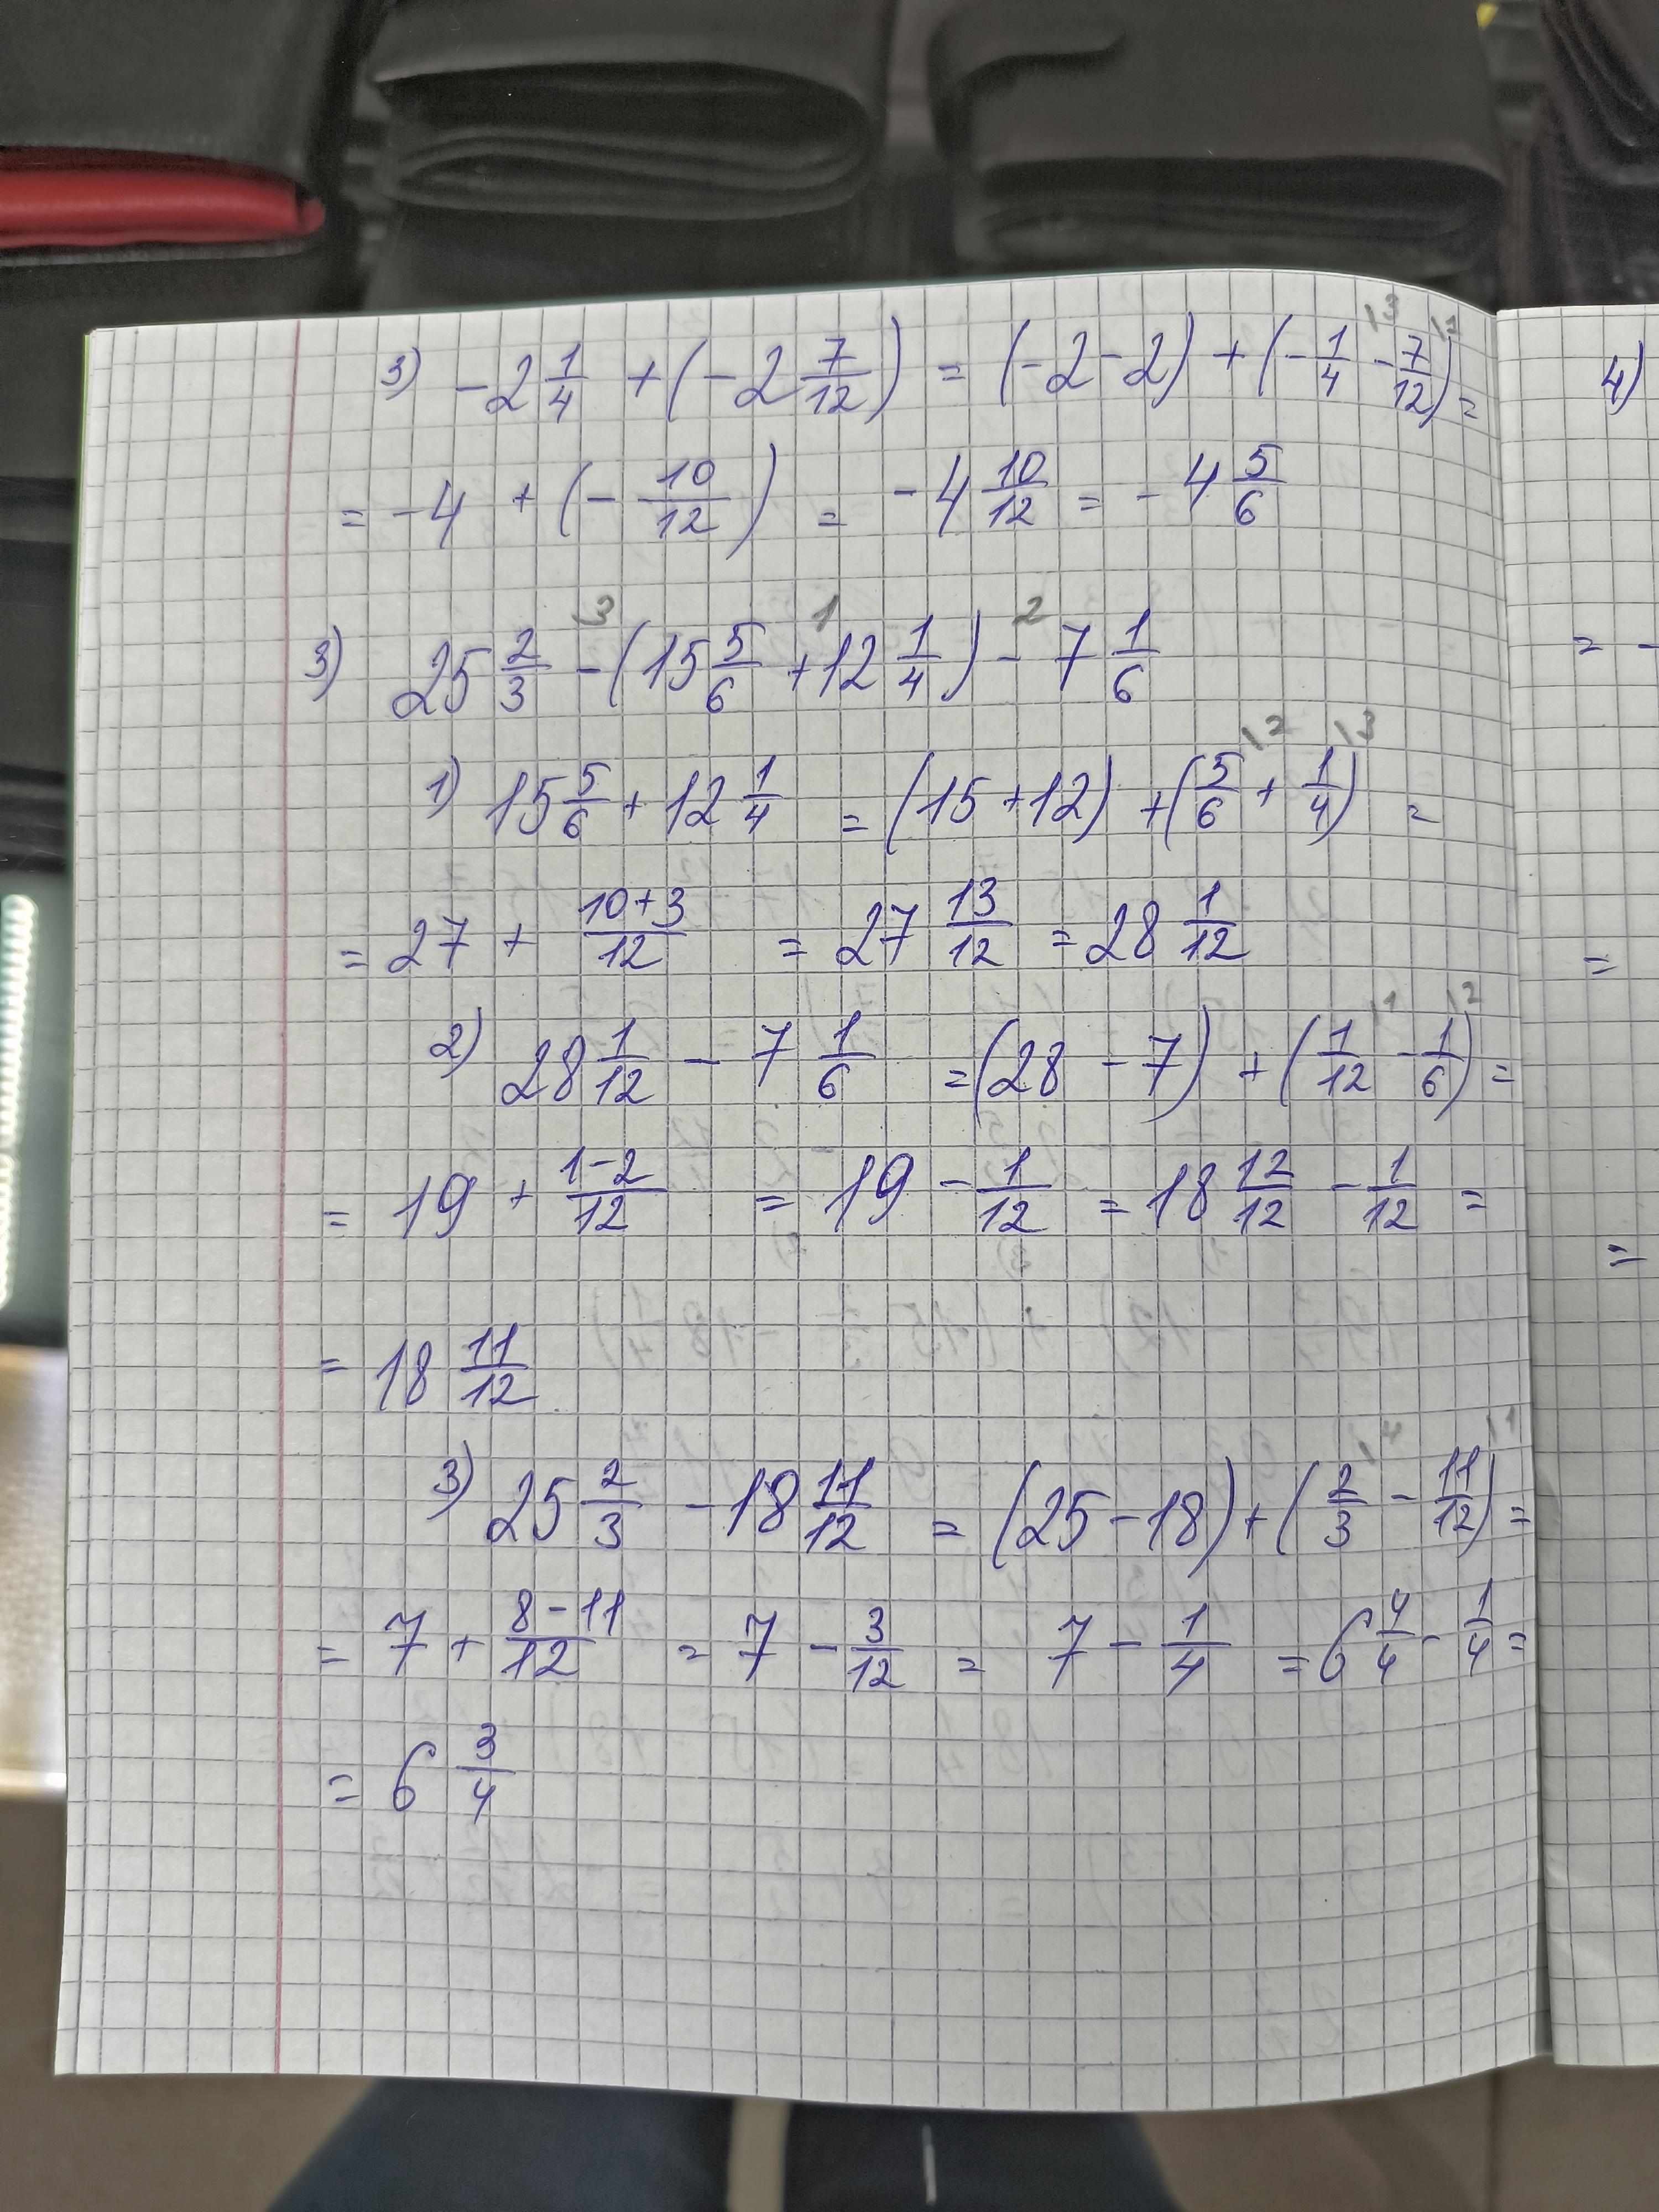 3) -2 1/4 + (-2 7/12) = (-2-2) + (-1/4 \3 - 7/12 \1) =
= -4 + (-10/12) = -4 10/12 = -4 5/6
3) 25 2/3 -3 (15 5/6 +1 12 1/4) -2 7 1/6
1) 15 5/6 + 12 1/4 = (15+12) + (5/6 \2 + 1/4 \3) =
= 27 + (10+3)/12 = 27 13/12 = 28 1/12
2) 28 1/12 - 7 1/6 = (28 - 7) + (1/12 \1 - 1/6 \2) =
= 19 + (1-2)/12 = 19 - 1/12 = 18 12/12 - 1/12 =
= 18 11/12
3) 25 2/3 - 18 11/12 = (25-18) + (2/3 \4 - 11/12 \1) =
= 7 + (8-11)/12 = 7 - 3/12 = 7 - 1/4 = 6 4/4 - 1/4 =
= 6 3/4
4)
= -
=
=